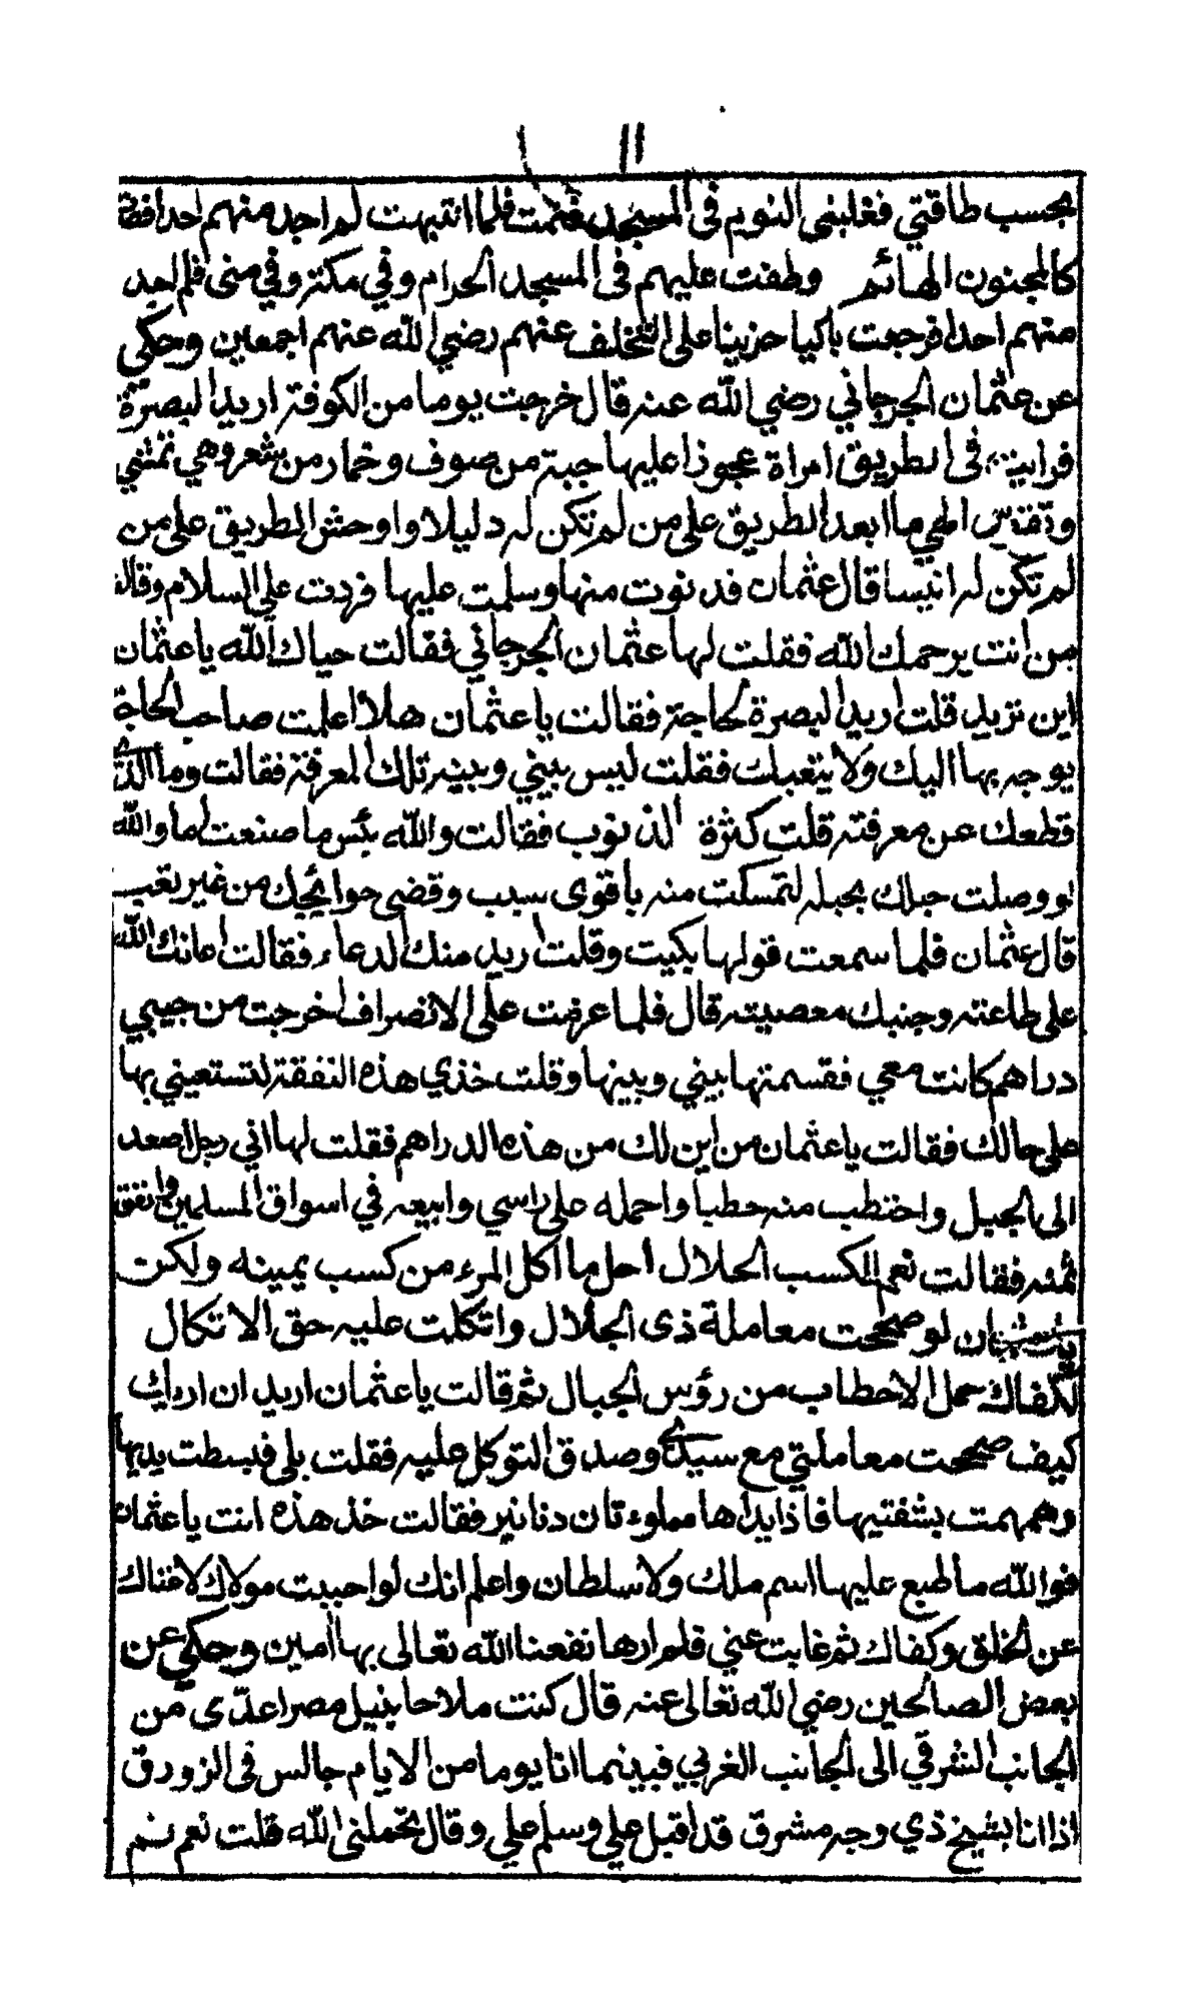 ١١
بحسب طاقتي فغلبني النوم في المسجد فنمت فلما انتبهت لم اجد منهم احدا فقمت
كالمجنون الهائم وطفت عليهم في المسجد الحرام وفي مكة وفي منى فلم اجد
منهم احدا فرجعت باكيا حزينا على التخلف عنهم رضي الله عنهم اجمعين وحكى
عن عثمان الجرجاني رضي الله عنه قال خرجت يوما من الكوفة اريد البصرة
فرايت في الطريق امراة عجوزا عليها جبة من صوف وخمار من شعر وهي تمشي
وتقول الهي ما ابعد الطريق على من لم تكن له دليلا واوحش الطريق على من
لم تكن له انيسا قال عثمان فدنوت منها وسلمت عليها فردت علي السلام وقالت
من انت يرحمك الله فقلت لها عثمان الجرجاني فقالت حياك الله يا عثمان
اين تريد قلت اريد البصرة لحاجة فقالت يا عثمان هلا اعلمت صاحب الحاجة
يوجه بها اليك ولا يتعبك فقلت ليس بيني وبينه تلك المعرفة فقالت وما الذي
قطعك عن معرفته قلت كثرة الذنوب فقالت والله بئس ما صنعت اما والله
لو وصلت حبلك بحبله لتمسكت منه باقوى سبب وقضى حوائجك من غير تعب
قال عثمان فلما سمعت قولها بكيت وقلت اريد منك الدعاء فقالت اعانك الله
على طاعته وجنبك معصيته قال فلما عزمت على الانصراف اخرجت من جيبي
دراهم كانت معي فقسمتها بيني وبينها وقلت خذي هذه النفقة لتستعيني بها
على حالك فقالت يا عثمان من اين لك من هذه الدراهم فقلت لها اني رجل اصعد
الى الجبل واحتطب منه حطبا واحمله على راسي وابيعه في اسواق المسلمين وانفق
ثمنه فقالت نعم الكسب الحلال احل ما اكل المرء من كسب يمينه ولكن
يا عثمان لو صححت معاملة ذى الجلال واتكلت عليه حق الاتكال
لكفاك حمل الاحطاب من رؤس الجبال ثم قالت يا عثمان اريد ان اريك
كيف صححت معاملتي مع سيدي وصدق التوكل عليه فقلت بلى فبسطت يديها
وهمهمت بشفتيها فاذا يداها مملوءتان دنانير فقالت خذ هذه انت يا عثمان
فوالله ما طبع عليها اسم ملك ولا سلطان واعلم انك لو احببت مولاك لاغناك
عن الخلق وكفاك ثم غابت عني فلم ارها نفعنا الله تعالى بها امين وحكي عن
بعض الصالحين رضي الله تعالى عنه قال كنت ملاحا بنيل مصر اعدى من
الجانب الشرقي الى الجانب الغربي فبينما انا يوما من الايام جالس في الزورق
اذا انا بشيخ ذي وجه مشرق قد اقبل علي وسلم علي وقال تحملني الله قلت نعم ثم